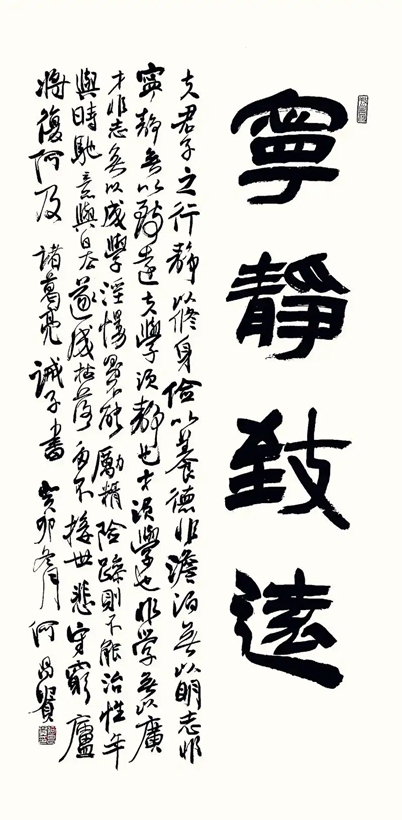 寧靜致遠
夫君子之行靜以修身儉以養德非澹泊無以明志非
寧靜無以致遠夫學須靜也才須學也非學無以廣
才非志無以成學淫慢則不能勵精險躁則不能治性年
與時馳意與日去遂成枯落多不接世悲守窮廬
將復何及 諸葛亮 誡子書 癸卯冬月 何